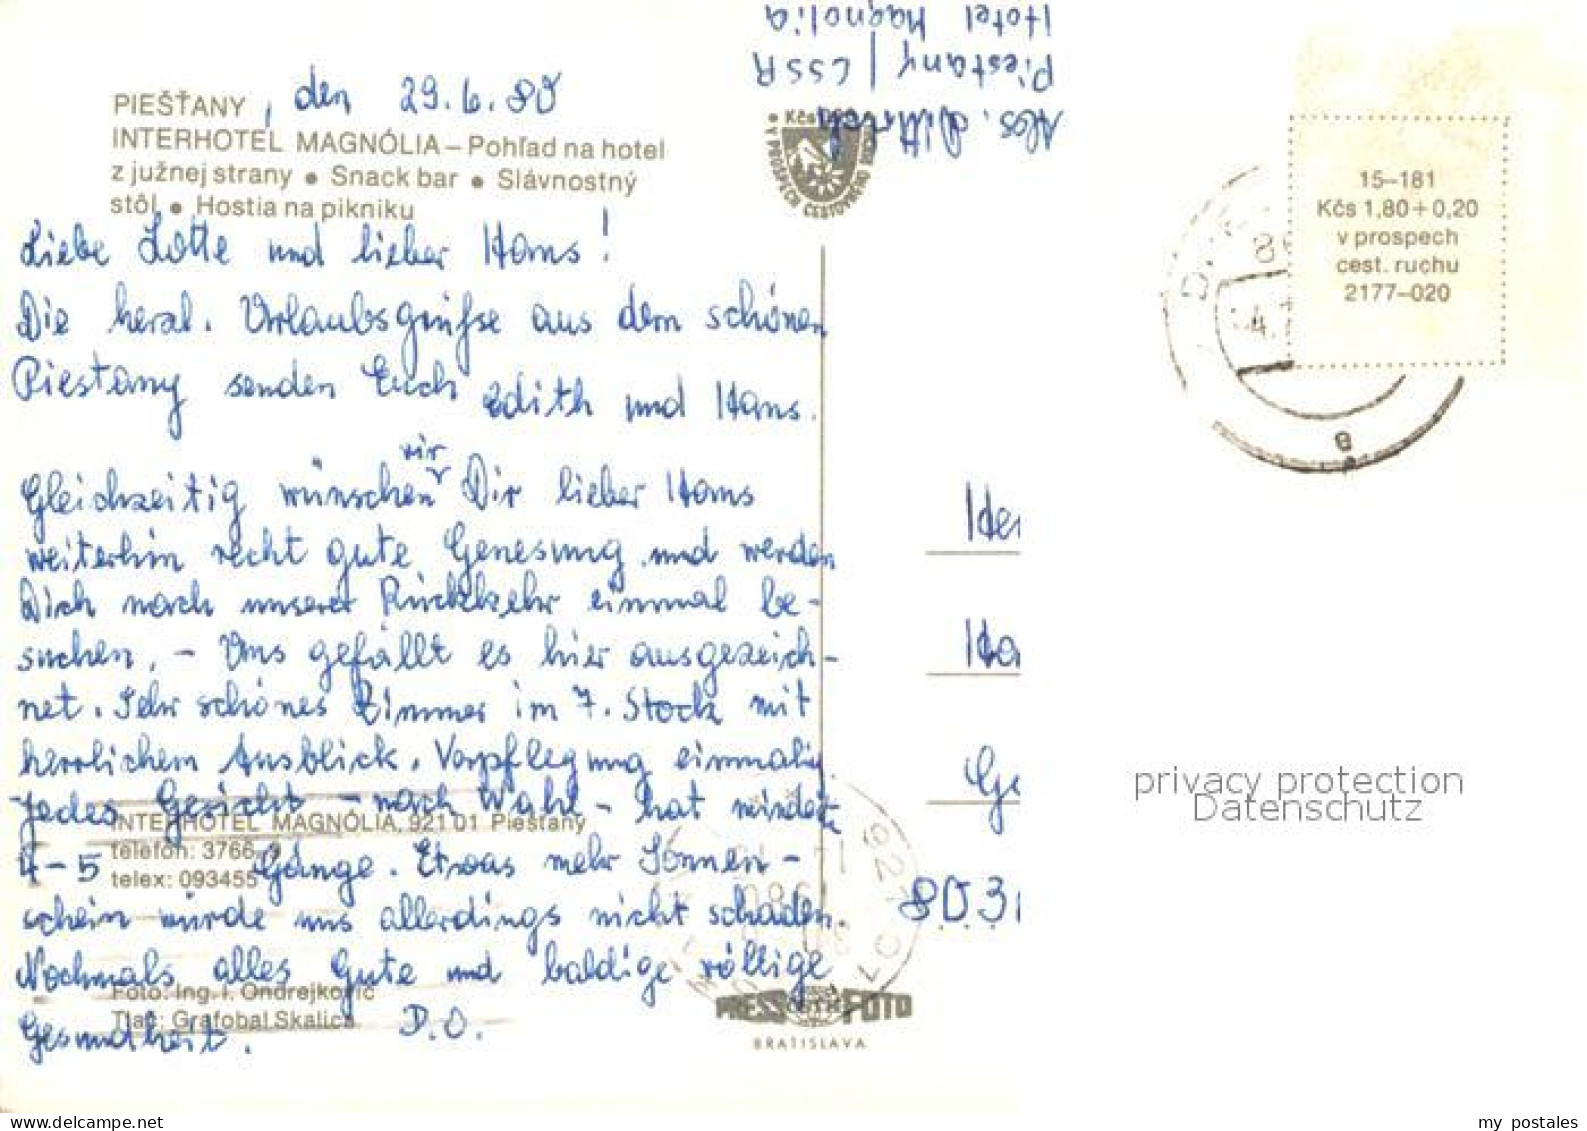 PIEŠŤANY, den 29.6.80
INTERHOTEL MAGNÓLIA – Pohľad na hotel
z južnej strany • Snack bar • Slávnostný
stôl • Hostia na pikniku
Liebe Lotte und lieber Hans!
Die herzl. Urlaubsgrüße aus dem schönen
Piestany senden Euch Edith und Hans.
Gleichzeitig wünschen wir Dir lieber Hans
weiterhin recht gute Genesung und werden
Dich nach unserer Rückkehr einmal be-
suchen. – Uns gefällt es hier ausgezeich-
net. Sehr schönes Zimmer im 7. Stock mit
herrlichem Ausblick. Verpflegung einmalig.
Jedes Gericht – nach Wahl – hat mindest.
4–5 Gänge. Etwas mehr Sonnen-
schein würde uns allerdings nicht schaden.
Nochmals alles Gute und baldige völlige
Gesundheit. D.O.
INTERHOTEL MAGNÓLIA, 921 01 Piešťany
telefón: 3766-9
telex: 093455
Foto: Ing. I. Ondrejkovič
Tlač: Grafobal Skalica
Abs. Dittrich
Piestany / CSSR
Hotel Magnolia
Kčs
V PROSPECH CESTOVNÉHO RUCHU
PRESSFOTO
BRATISLAVA
15–181
Kčs 1,80+0,20
v prospech
cest. ruchu
2177–020
Her
Ha
Ge
803
privacy protection
Datenschutz
my postales